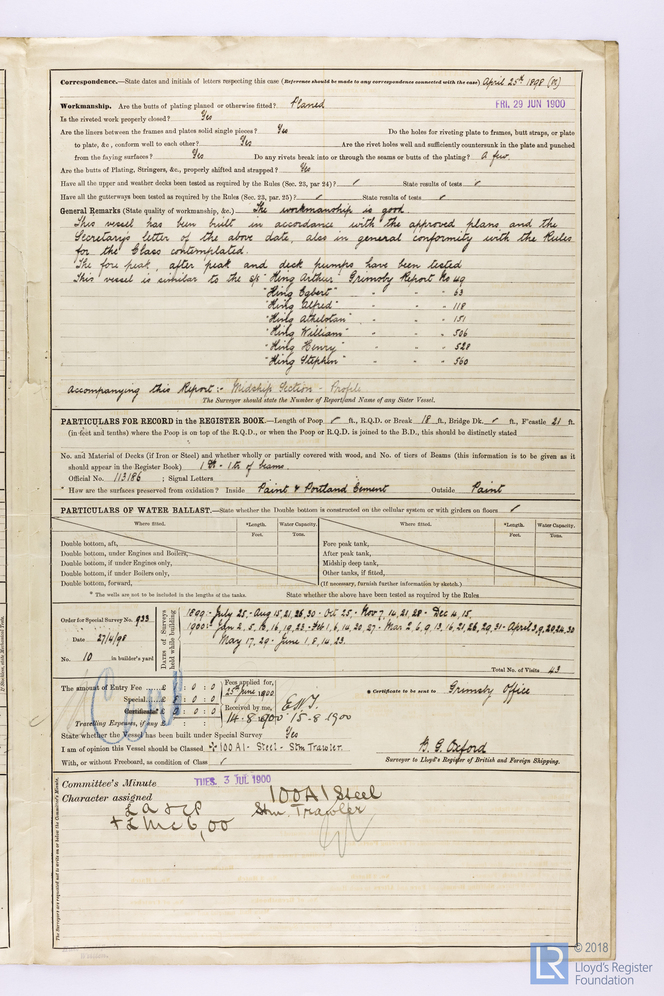 Correspondence.—State dates and initials of letters respecting this case (Reference should be made to any correspondence connected with the case) April 25th 1898 (R)
Workmanship. Are the butts of plating planed or otherwise fitted? Planed
FRI. 29 JUN 1900
Is the riveted work properly closed? Yes
Are the liners between the frames and plates solid single pieces? Yes Do the holes for riveting plate to frames, butt straps, or plate
to plate, &c., conform well to each other? Yes Are the rivet holes well and sufficiently countersunk in the plate and punched
from the faying surfaces? Yes Do any rivets break into or through the seams or butts of the plating? A few.
Are the butts of Plating, Stringers, &c., properly shifted and strapped? Yes
Have all the upper and weather decks been tested as required by the Rules (Sec. 23, par 24)? ✓ State results of tests ✓
Have all the gutterways been tested as required by the Rules (Sec. 23, par. 25)? ✓ State results of tests ✓
General Remarks (State quality of workmanship, &c.) The workmanship is good.
This vessel has been built in accordance with the approved plans, and the
Secretary's letter of the above date, also in general conformity with the Rules
for the Class contemplated.
The fore peak, after peak and deck pumps have been tested
This vessel is similar to the S/S "King Arthur" Grimsby Report No 49
"King Egbert" " " 63
"King Alfred" " " 118
"King Athelstan" " " 151
"King William" " " 506
"King Henry" " " 528
"King Stephen" " " 560
accompanying this Report:- Midship Section - Profile
The Surveyor should state the Number of Report and Name of any Sister Vessel.
PARTICULARS FOR RECORD in the REGISTER BOOK.—Length of Poop ✓ ft., R.Q.D. or Break 18 ft., Bridge Dk. ✓ ft., F'castle 21 ft.
(in feet and tenths) where the Poop is on top of the R.Q.D., or when the Poop or R.Q.D. is joined to the B.D., this should be distinctly stated
No. and Material of Decks (if Iron or Steel) and whether wholly or partially covered with wood, and No. of tiers of Beams (this information is to be given as it
should appear in the Register Book) 1 Dk - 1 tr of beams
Official No. 113186 ; Signal Letters
* How are the surfaces preserved from oxidation? Inside Paint & Portland Cement Outside Paint
PARTICULARS OF WATER BALLAST.—State whether the Double bottom is constructed on the cellular system or with girders on floors ✓
Where fitted. *Length. Water Capacity. Where fitted. *Length. Water Capacity.
Feet. Tons. Feet. Tons.
Double bottom, aft, Fore peak tank,
Double bottom, under Engines and Boilers, After peak tank,
Double bottom, if under Engines only, Midship deep tank,
Double bottom, if under Boilers only, Other tanks, if fitted,
Double bottom, forward, (If necessary, furnish further information by sketch.)
* The wells are not to be included in the lengths of the tanks. State whether the above have been tested as required by the Rules
Order for Special Survey No. 933
Date 27/4/98
No. 10 in builder's yard
Dates of Surveys held while building
1899:- July 25,- Aug 15,21,26,30 - Oct 25,- Nov 7,14,21,28 - Dec 4,15,
1900:- Jan 2, 5, 13, 16, 19, 23 - Feb 1, 6, 14, 20, 27 - Mar 2, 6, 9, 13, 16, 21, 26, 29, 31 - April 3, 9, 20, 24, 30
May 17, 29 - June 1, 8, 14, 23.
Total No. of Visits 43
The amount of Entry Fee £ : 0 : 0
Special £ : 0 : 0
Certificate £ : 0 : 0
Travelling Expenses, if any £ : :
Fees applied for,
25th June 1900
Received by me,
E.W.T.
14.8.1900 15-8-1900
* Certificate to be sent to Grimsby Office
State whether the Vessel has been built under Special Survey Yes
I am of opinion this Vessel should be Classed +100 A1 - Steel - Stm Trawler.
With, or without Freeboard, as condition of Class ✓
B. G. Oxford
Surveyor to Lloyd's Register of British and Foreign Shipping.
Committee's Minute TUES. 3 JUL 1900
Character assigned 100A1 Steel
Stm. Trawler
LA & CP
+ LMC 6,00
© 2018
LR
Lloyd's Register
Foundation